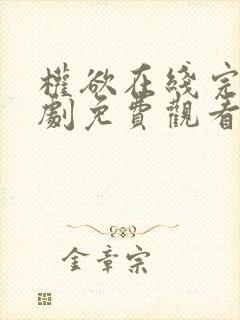 權欲在綫完
劇免費觀看
金章宗